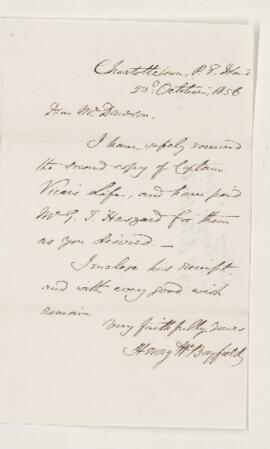 Charlottetown, P. E. Island
23d October, 1856
Dear Mr Dawson,
I have safely received
the second copy of Captain
Vicars Life, and have paid
Mr G. T. Haszard for them
as you desired. —
I enclose his receipt,
and with every good wish
remain
very faithfully yours
Henry W Bayfield